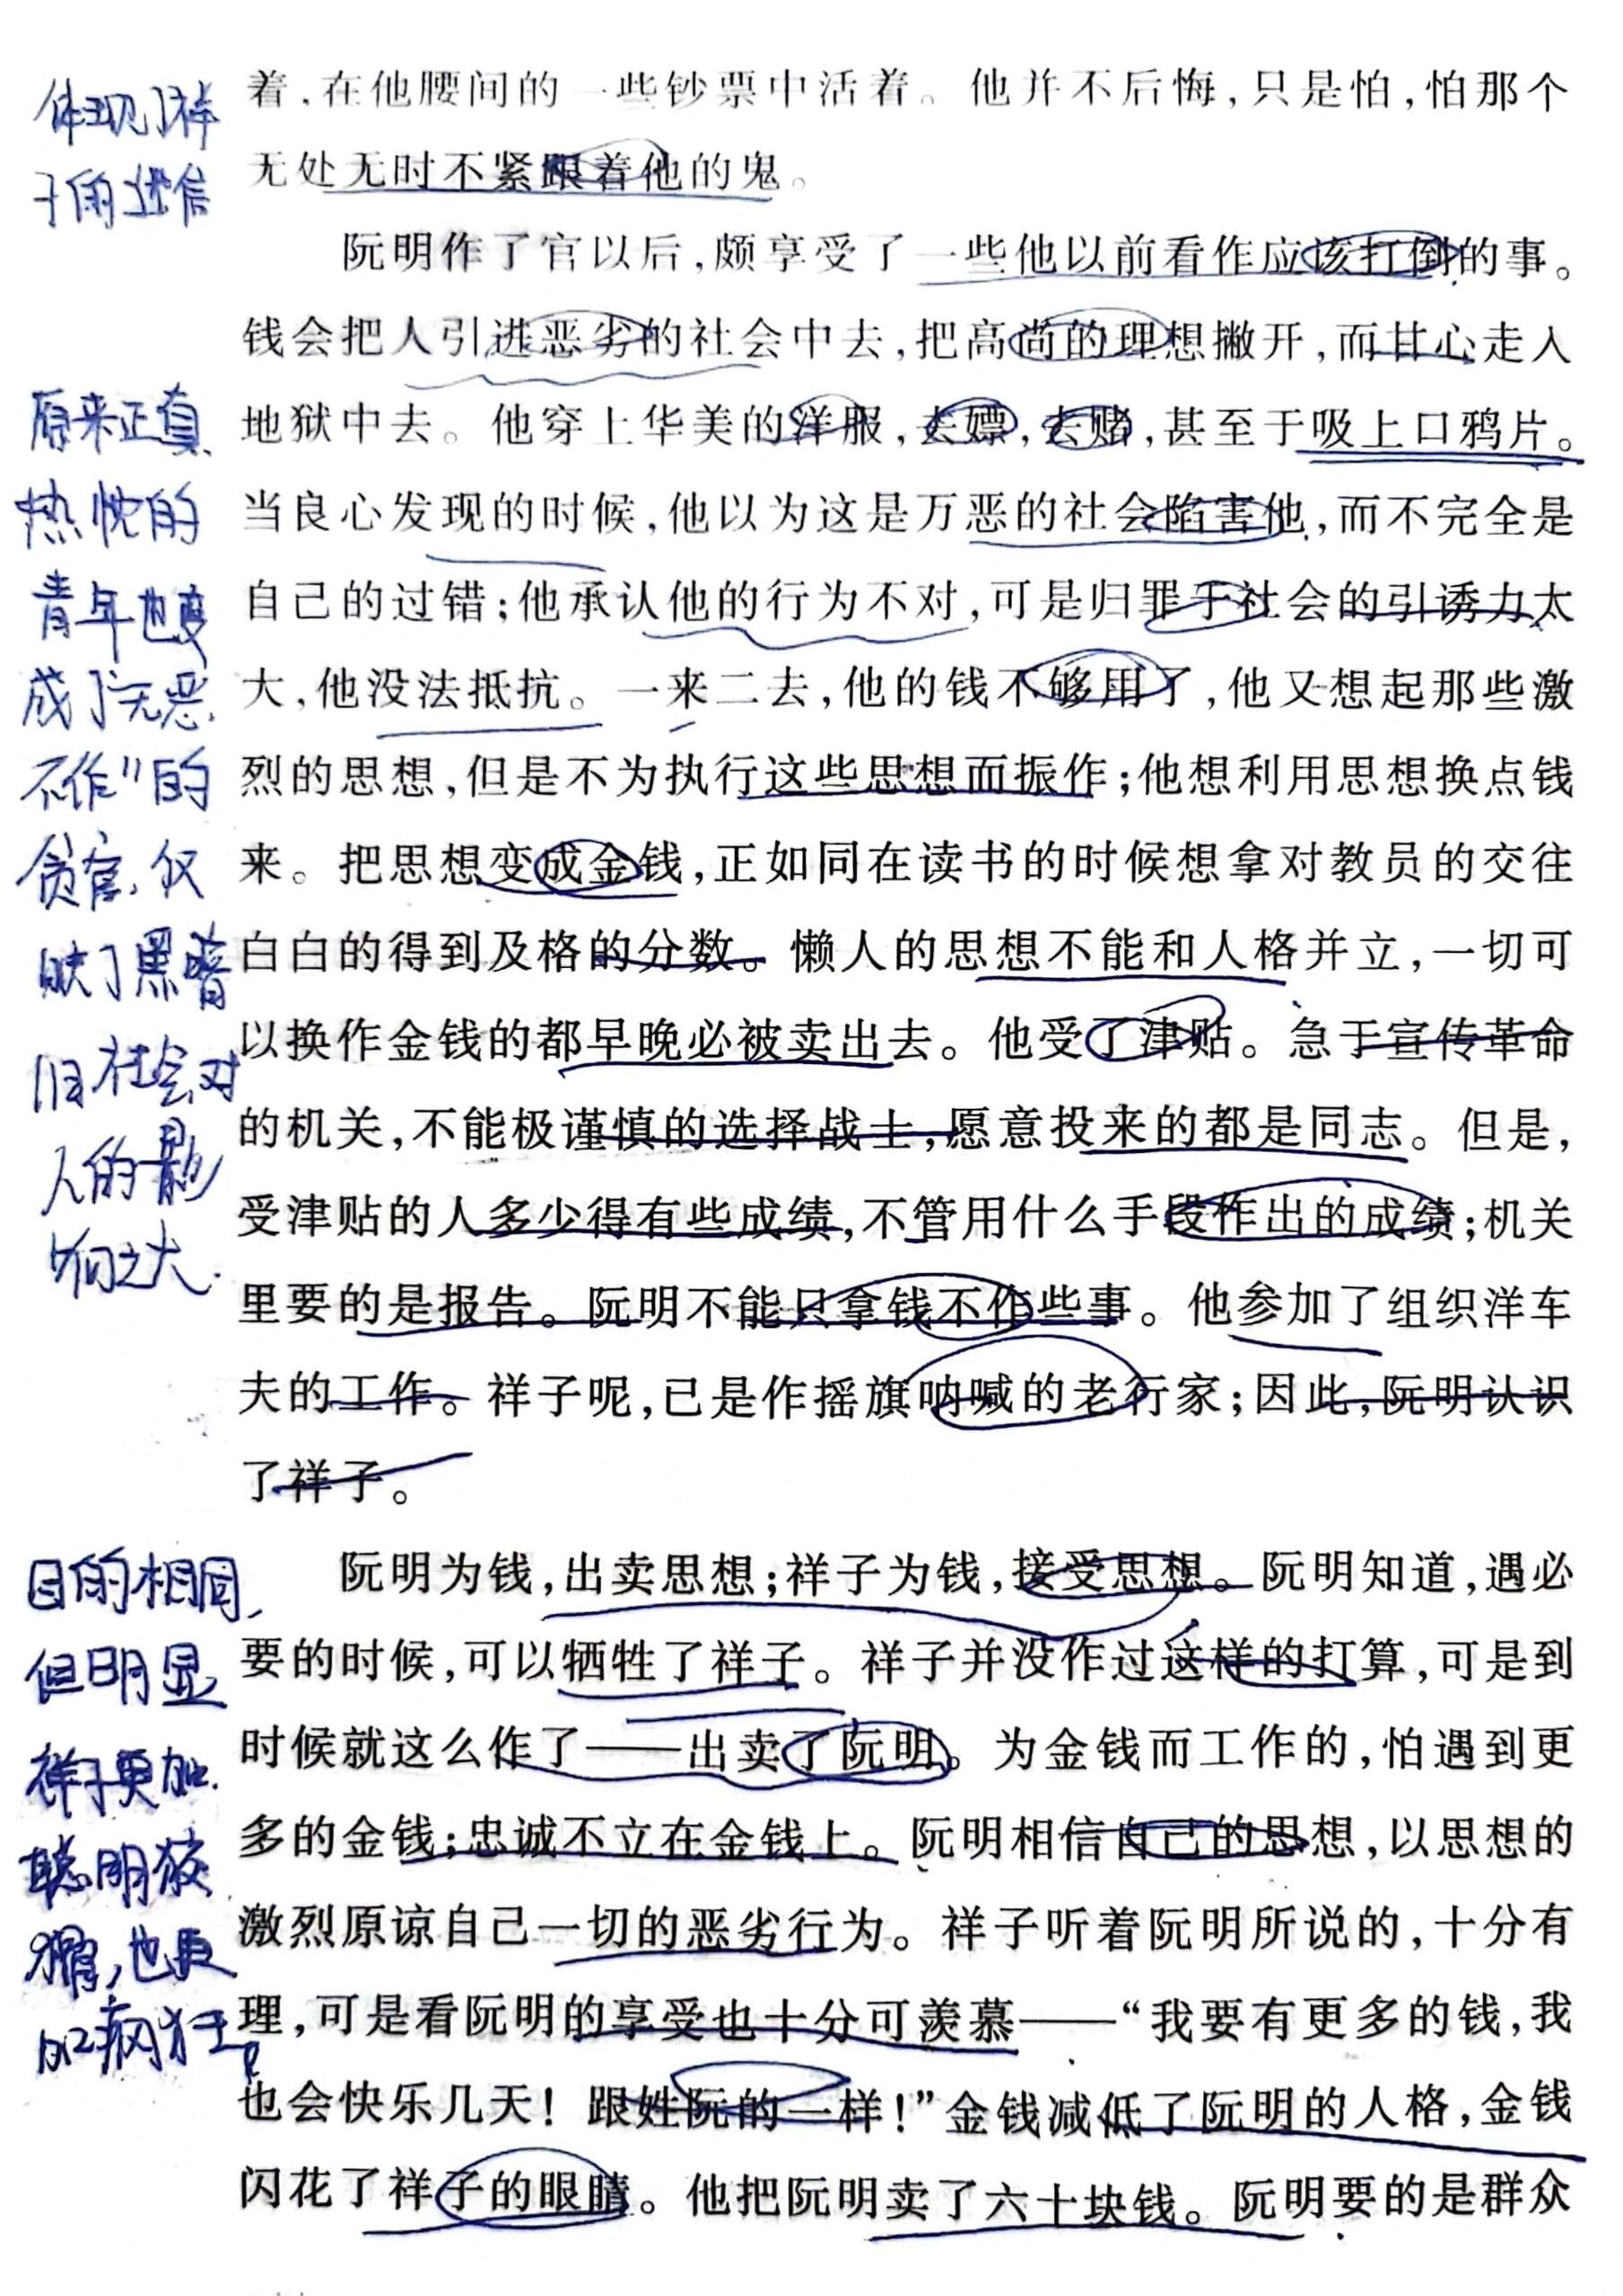 着,在他腰间的一些钞票中活着。他并不后悔,只是怕,怕那个
无处无时不紧跟着他的鬼。
阮明作了官以后,颇享受了一些他以前看作应该打倒的事。
钱会把人引进恶劣的社会中去,把高尚的理想撇开,而甘心走入
地狱中去。他穿上华美的洋服,去嫖,去赌,甚至于吸上口鸦片。
当良心发现的时候,他以为这是万恶的社会陷害他,而不完全是
自己的过错;他承认他的行为不对,可是归罪于社会的引诱力太
大,他没法抵抗。一来二去,他的钱不够用了,他又想起那些激
烈的思想,但是不为执行这些思想而振作;他想利用思想换点钱
来。把思想变成金钱,正如同在读书的时候想拿对教员的交往
白白的得到及格的分数。懒人的思想不能和人格并立,一切可
以换作金钱的都早晚必被卖出去。他受了津贴。急于宣传革命
的机关,不能极谨慎的选择战士,愿意投来的都是同志。但是,
受津贴的人多少得有些成绩,不管用什么手段作出的成绩;机关
里要的是报告。阮明不能只拿钱不作些事。他参加了组织洋车
夫的工作。祥子呢,已是作摇旗呐喊的老行家;因此,阮明认识
了祥子。
阮明为钱,出卖思想;祥子为钱,接受思想。阮明知道,遇必
要的时候,可以牺牲了祥子。祥子并没作过这样的打算,可是到
时候就这么作了——出卖了阮明。为金钱而工作的,怕遇到更
多的金钱;忠诚不立在金钱上。阮明相信自己的思想,以思想的
激烈原谅自己一切的恶劣行为。祥子听着阮明所说的,十分有
理,可是看阮明的享受也十分可羡慕——“我要有更多的钱,我
也会快乐几天!跟姓阮的一样!”金钱减低了阮明的人格,金钱
闪花了祥子的眼睛。他把阮明卖了六十块钱。阮明要的是群众
体现了祥
子的迷信
原来正直、
热忱的
青年也变
成了“无恶
不作”的
贪官,反
映了黑暗
旧社会对
人的影
响之大.
目的相同,
但明显
祥子更加
聪明狡
猾,也更
加疯狂